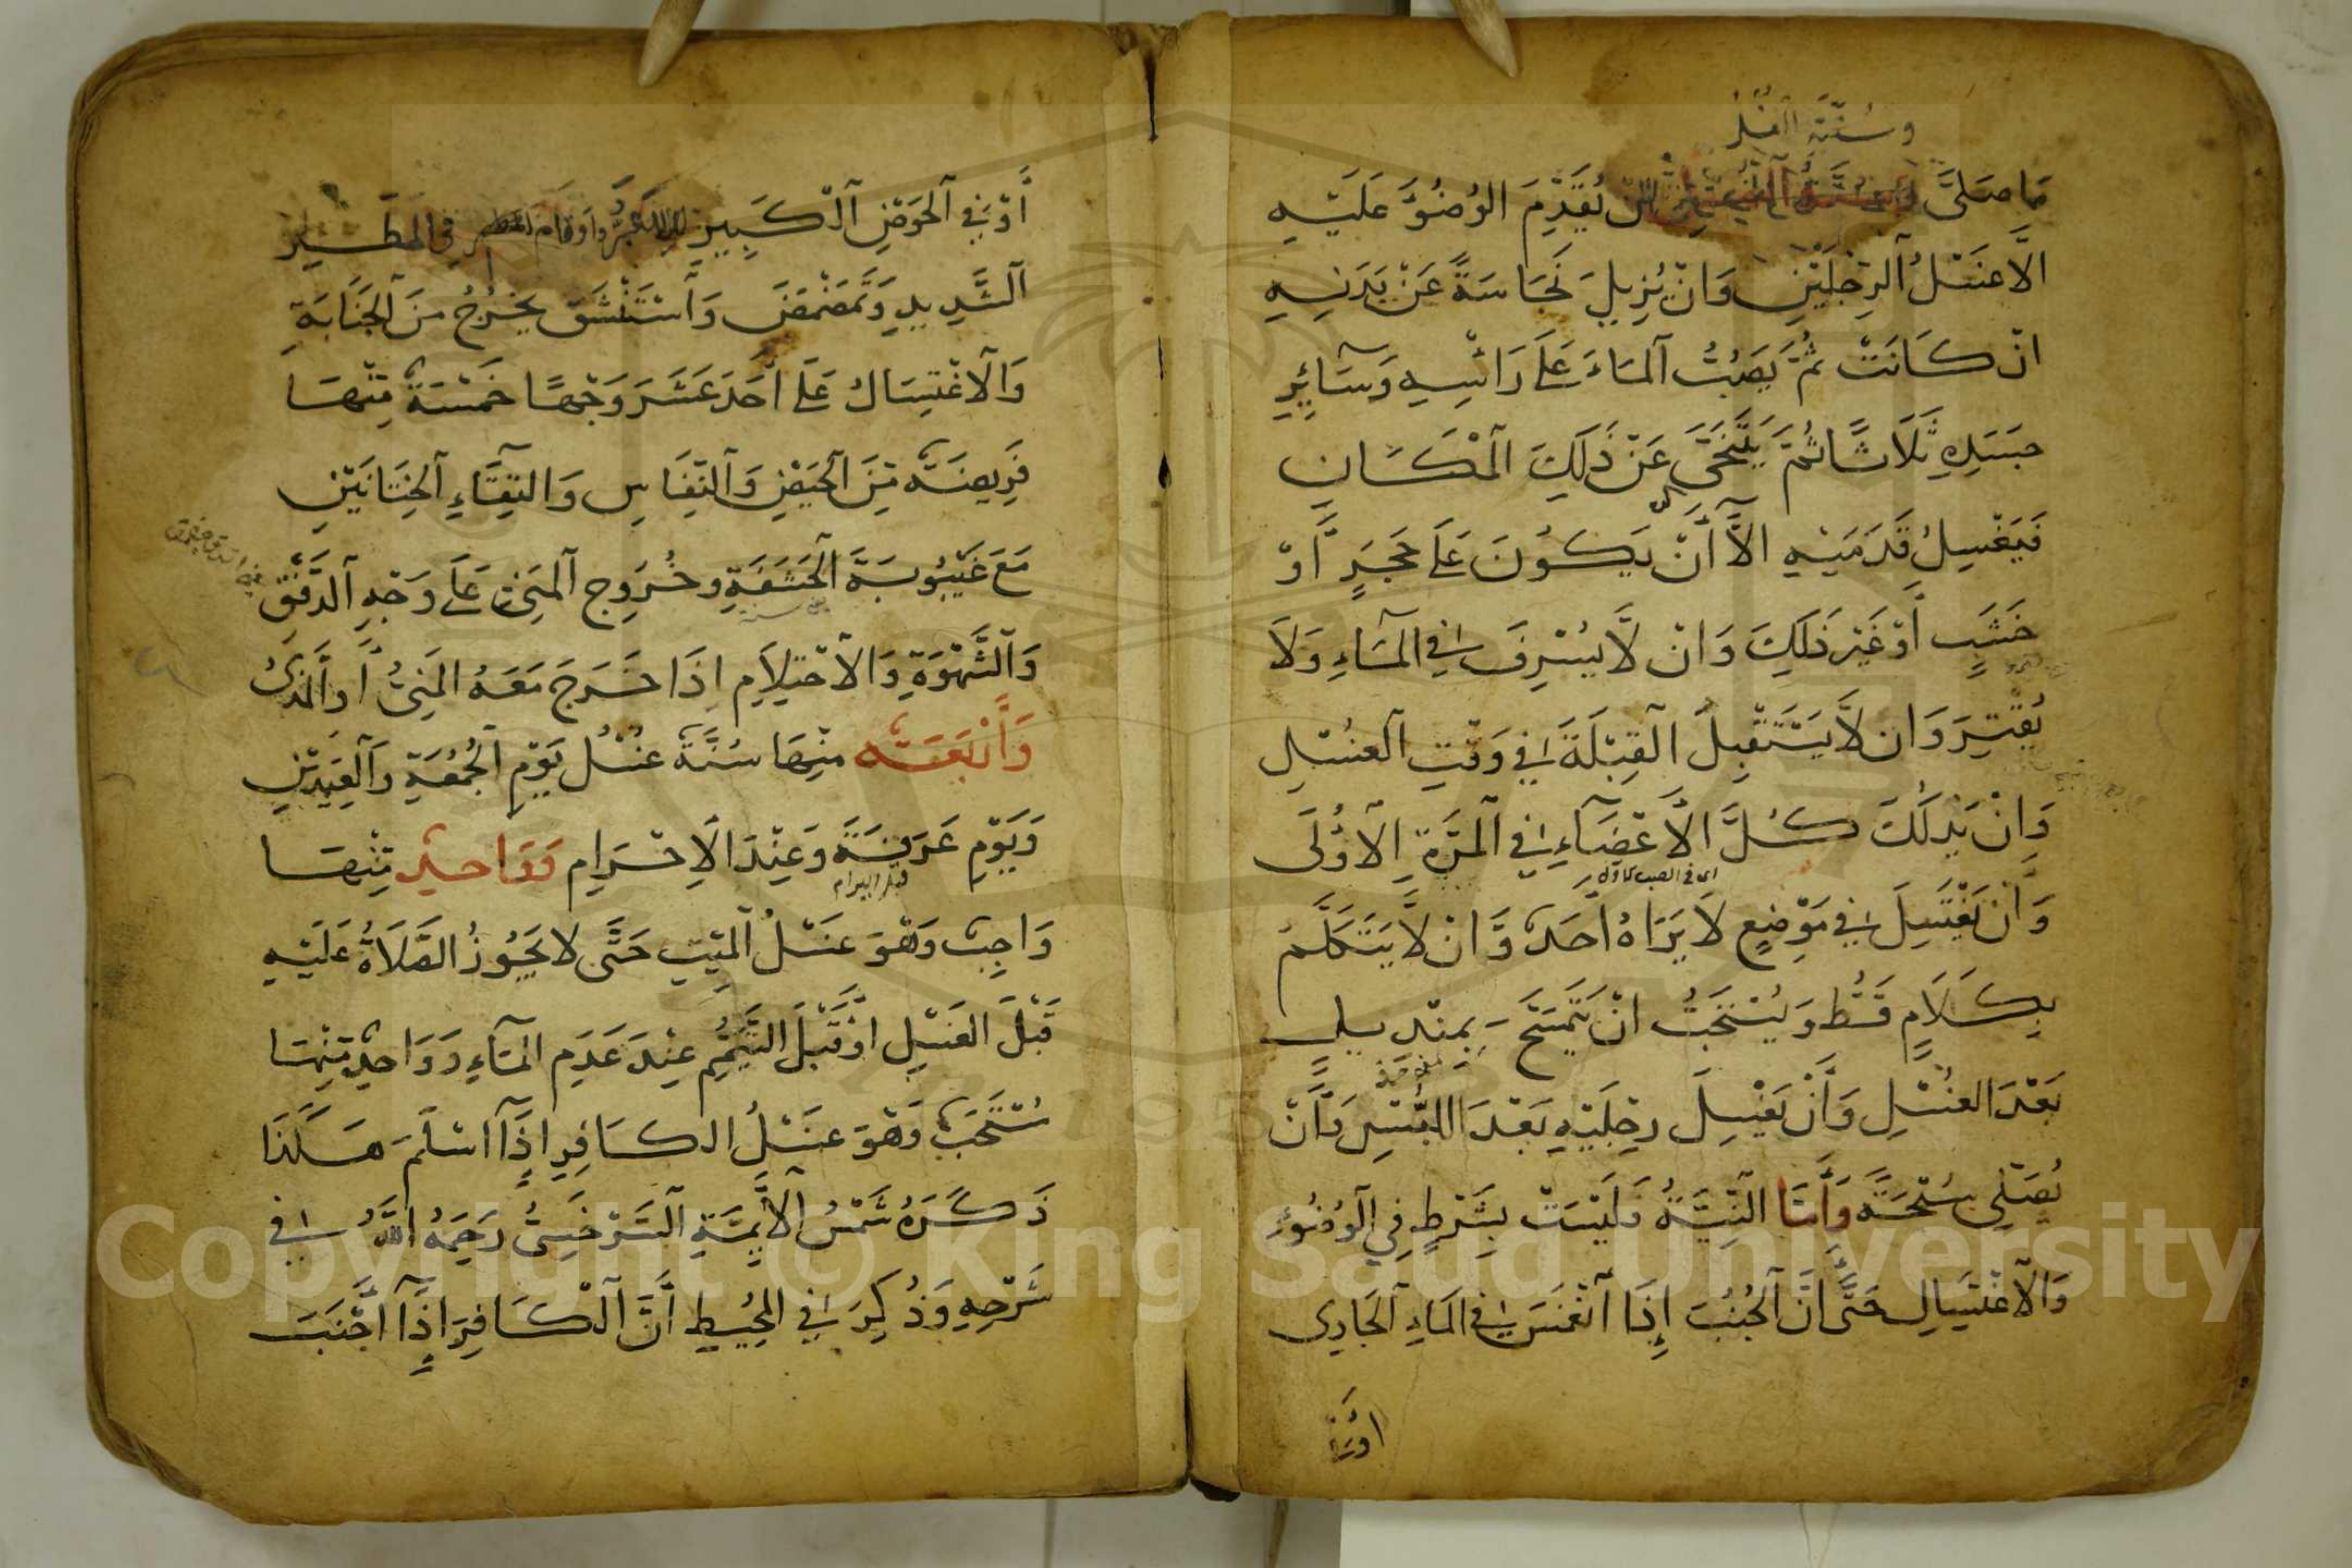 وسنة الغسل
ما صَلَّى أن يُقَدِّمَ الوُضُوءَ عَلَيْهِ
الَّا غَسْلَ الرِّجْلَيْنِ وَانْ يُزِيلَ نَجَاسَةً عَنْ بَدَنِهِ
انْ كَانَتْ ثُمَّ يَصُبُّ الْمَاءَ عَلَى رَأْسِهِ وَسَائِرِ
جَسَدِهِ ثَلَاثًا ثُمَّ يَتَنَحَّى عَنْ ذَلِكَ الْمَكَانِ
فَيَغْسِلُ قَدَمَيْهِ الَّا أَنْ يَكُونَ عَلَى حَجَرٍ أَوْ
خَشَبٍ أَوْ غَيْرِ ذَلِكَ وَانْ لَا يُسْرِفَ فِي الْمَاءِ وَلَا
يُقَتِّرَ وَان لَا يَسْتَقْبِلَ الْقِبْلَةَ فِي وَقْتِ الْغُسْلِ
وَانْ يَدْلُكَ كُلَّ الْأَعْضَاءِ فِي الْمَرَّةِ الْأُولَى
اى فى الصب الاول
وَأَنْ يَغْتَسِلَ فِي مَوْضِعٍ لَا يَرَاهُ أَحَدٌ وَانْ لَا يَتَكَلَّمَ
بِكَلَامٍ قَطُّ وَيُسْتَحَبُّ انْ يَتَمَسَّحَ بِمِنْدِيلٍ
بَعْدَ الْغُسْلِ وَأَنْ يَغْسِلَ رِجْلَيْهِ بَعْدَ اللُّبْسِ وَأَنْ
يُصَلِّيَ سُبْحَةً وَأَمَّا النِّيَّةُ فَلَيْسَتْ بِشَرْطٍ فِي الْوُضُوءِ
وَالْاغْتِسَالِ حَتَّى انَّ الْجُنُبَ إِذَا انْغَمَسَ فِي الْمَاءِ الْجَارِي
اوفى
أَوْ فِي الْحَوْضِ الْكَبِيرِ او قام فى المَطَرِ
الشَّدِيدِ وَتَمَضْمَضَ وَاسْتَنْشَقَ يَخْرُجُ مِنَ الْجَنَابَةِ
وَالْاغْتِسَالُ عَلَى أَحَدَ عَشَرَ وَجْهًا خَمْسَةٌ مِنْهَا
فَرِيضَةٌ مِنَ الْحَيْضِ وَالنِّفَاسِ وَالْتِقَاءِ الْخِتَانَيْنِ
مَعَ غَيْبُوبَةِ الْحَشَفَةِ وخُرُوجِ الْمَنِيِّ عَلَى وَجْهِ الدَّفْقِ
وَالشَّهْوَةِ وَالْاحْتِلَامِ اذَا خَرَجَ مَعَهُ الْمَنِيُّ أَوِ الْمَذْيُ
وَأَرْبَعَةٌ مِنْهَا سُنَّةٌ غُسْلُ يَوْمِ الْجُمُعَةِ وَالْعِيدَيْنِ
وَيَوْمِ عَرَفَةَ وَعِنْدَ الْاحْرَامِ وَوَاحِدٌ مِنْهَا
قبل الاحرام
وَاجِبٌ وَهْوَ غَسْلُ الْمَيِّتِ حَتَّى لَا يَجُوزُ الصَّلَاةُ عَلَيْهِ
قَبْلَ الْغَسْلِ اوْ قَبْلَ التَّيَمُّمِ عِنْدَ عَدَمِ الْمَاءِ وَوَاحِدٌ مِنْهَا
مُسْتَحَبٌّ وَهْوَ غَسْلُ الْكَافِرِ اذَا اسْلَمَ هَكَذَا
ذَكَرَهُ شَمْسُ الْأَئِمَّةِ السَّرَخْسِيُّ رَحِمَهُ اللَّهُ فِي
شَرْحِهِ وَذُكِرَ فِي الْمُحِيطِ أَنَّ الْكَافِرَ اذَا أَجْنَبَ
Copyright © King Saud University